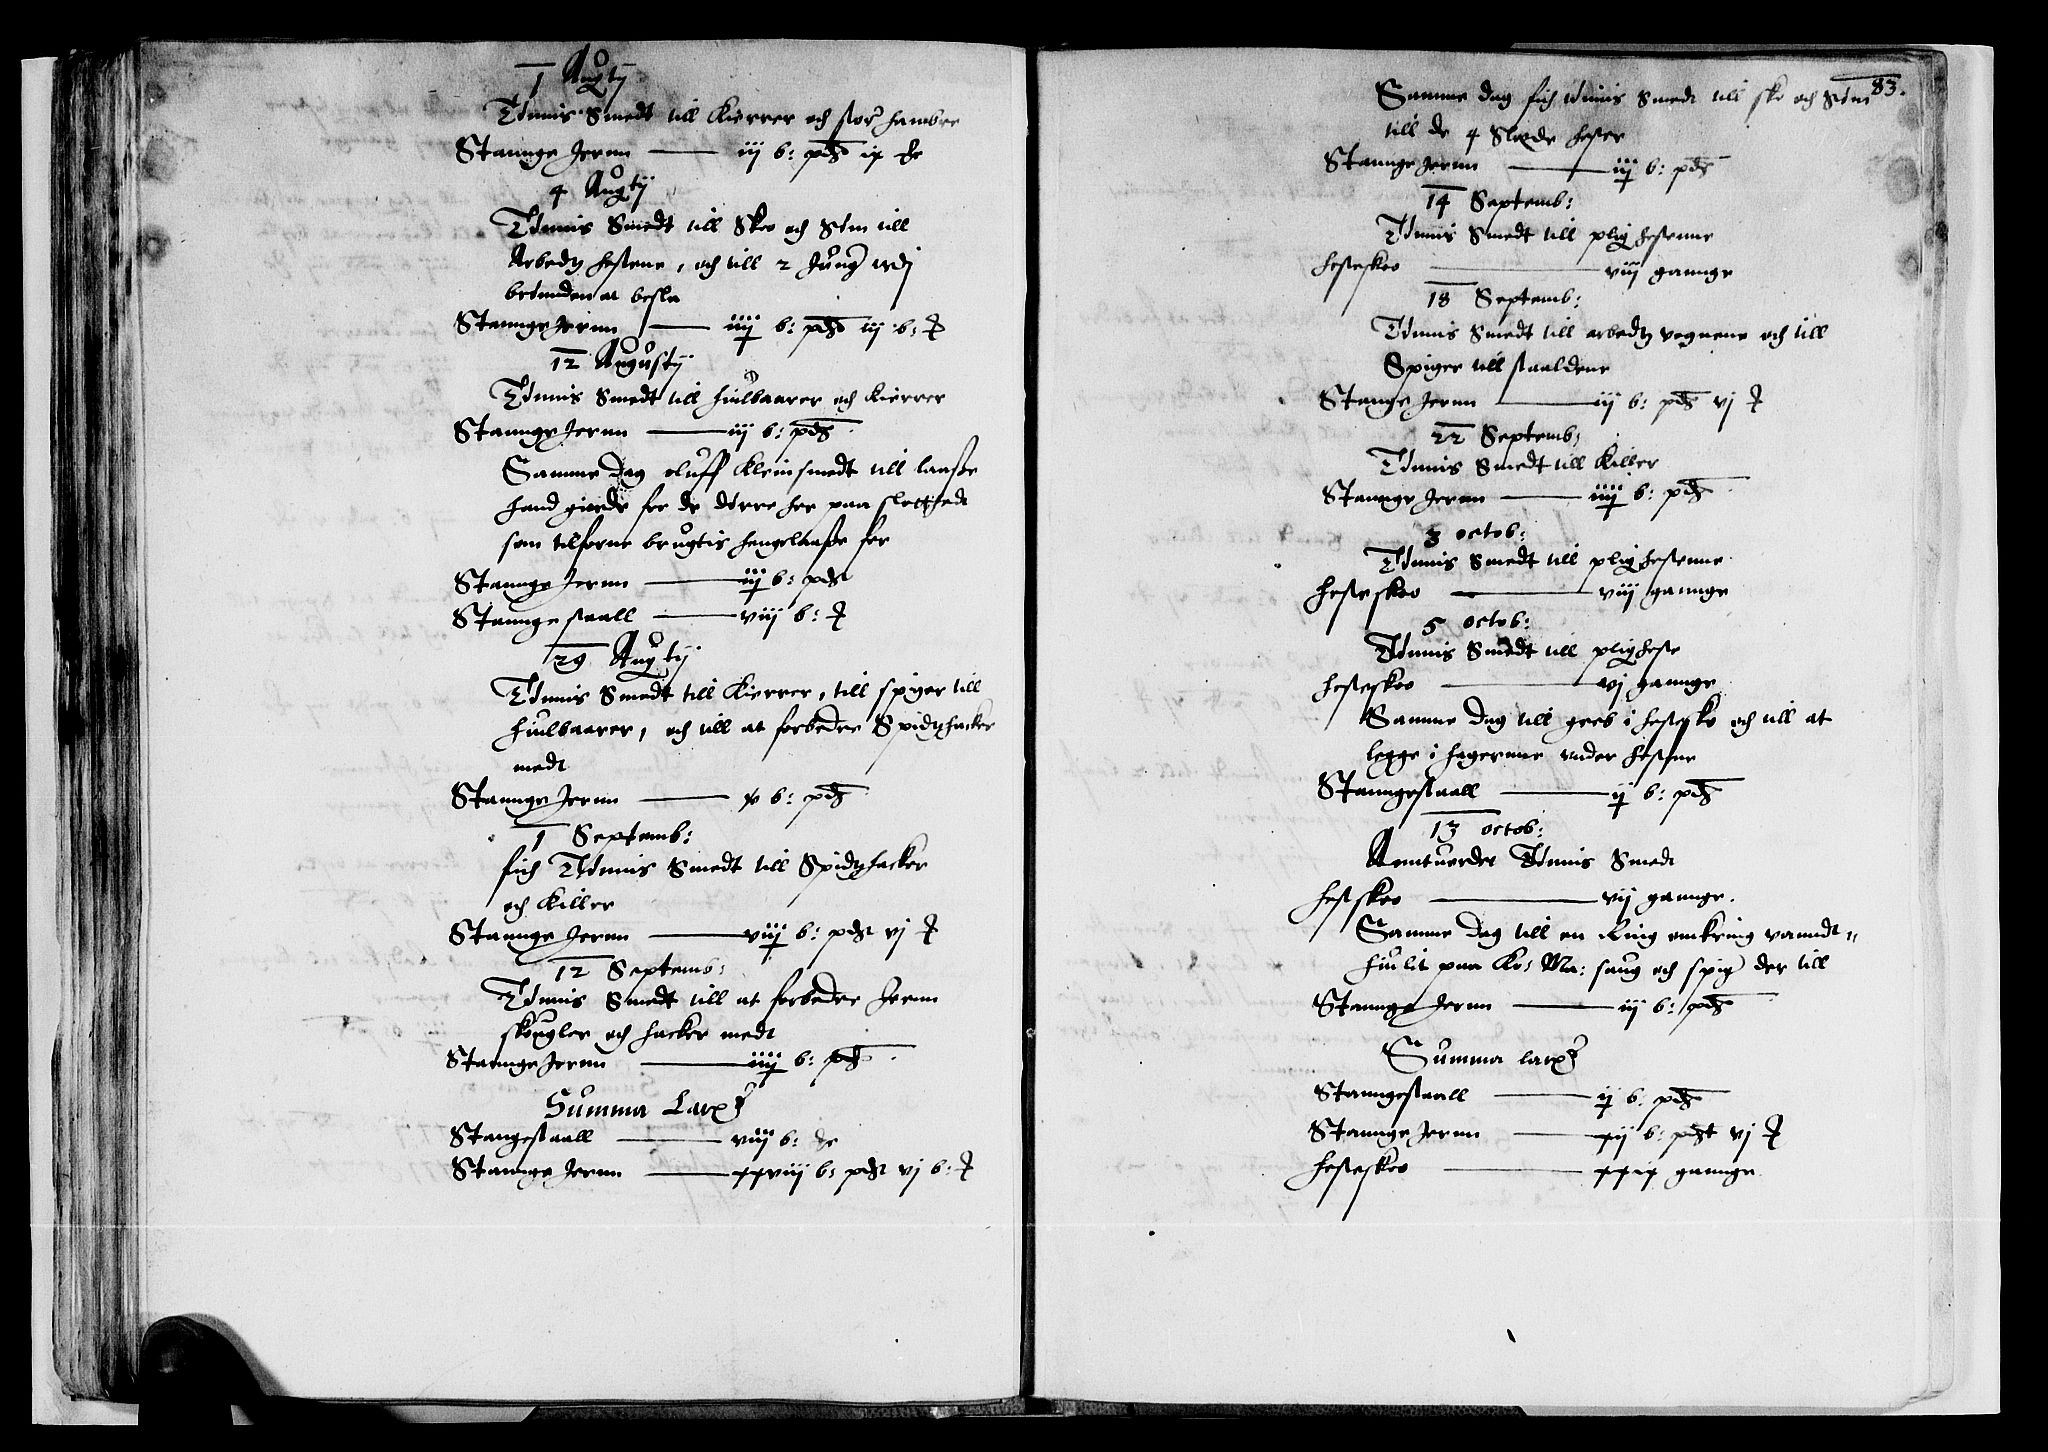 1 Augtij
Tönnis Smedt till Kierrer och stor hambre
Stannge Jernn iij b: pdt ix
4 Augtij
Tönnis Smedt till Skoo och Söm till
Arbedtz hestene, och till 2 Jung
brönden at besla
Stannge Jernn iiij b: pdt iij b:
12 Augustij
Tönnis Smedt till hiulbaarer och Kierrer
Stannge Jernn iij b: pdt
Samme dag oluff Kleinsmedt till laasse
hand giorde for de dörre her paa slottedt
som tilforne brugtis hengelaasse for
Stannge Jernn iij b: pdt
Stannge staall viij b:
29 Augtij
Tönnis Smedt till Kierrer, till spiger till
hiulbaarer, och till at forbedre Spidtzhacker
medt
Stannge Jernn v b: pdt
1 Septemb:
fich Tönnis Smedt till Spidtzhacker
och Killer
Stannge Jernn viij b: pdt vj
12 Septemb:
Tönnis Smedt till at forbedre Jernn
skougler och hacker medt
Stannge Jernn iiij b: pdt
Summa Lateris
Stangestaall viij b:
Stannge Jernn xxviij b: pdt vj b:
83.
Samme dag fich tönnis Smedt till sko och Söm
till de 4 Slede hester
Stannge Jernn iij b: pdt
14 Septemb:
Tönnis Smedt till plighestenne
hesteskoo viij gannge
18 Septemb:
Tönnis Smedt till arbedtz vognene och till
Spiger till staaldene
Stannge Jernn iij b: pdt vj
22 Septemb:
Tönnis Smedt till Killer
Stannge Jernn iiij b: pdt
3 octob:
Tönnis Smedt till plighestenne
hesteskoo viij gannge
5 octob:
Tönnis Smedt till pligheste
hesteskoo vj gannge
Samme dag till greb i hestesko och till at
legge i hagerne under hestene
Stanngestaall ij b: pdt
13 octob:
Anntuordet Tönnis Smedt
hesteskoo vij gannge.
Samme dag till en Ring omkring vanndt
hiulit paa Ko: Ma: saug och spiger der till
Stannge Jernn iij b: pdt
Summa lateris
Stanngestaall ij b: pdt
Stannge Jernn xij b: pdt vj
hesteskoo xxix gannge